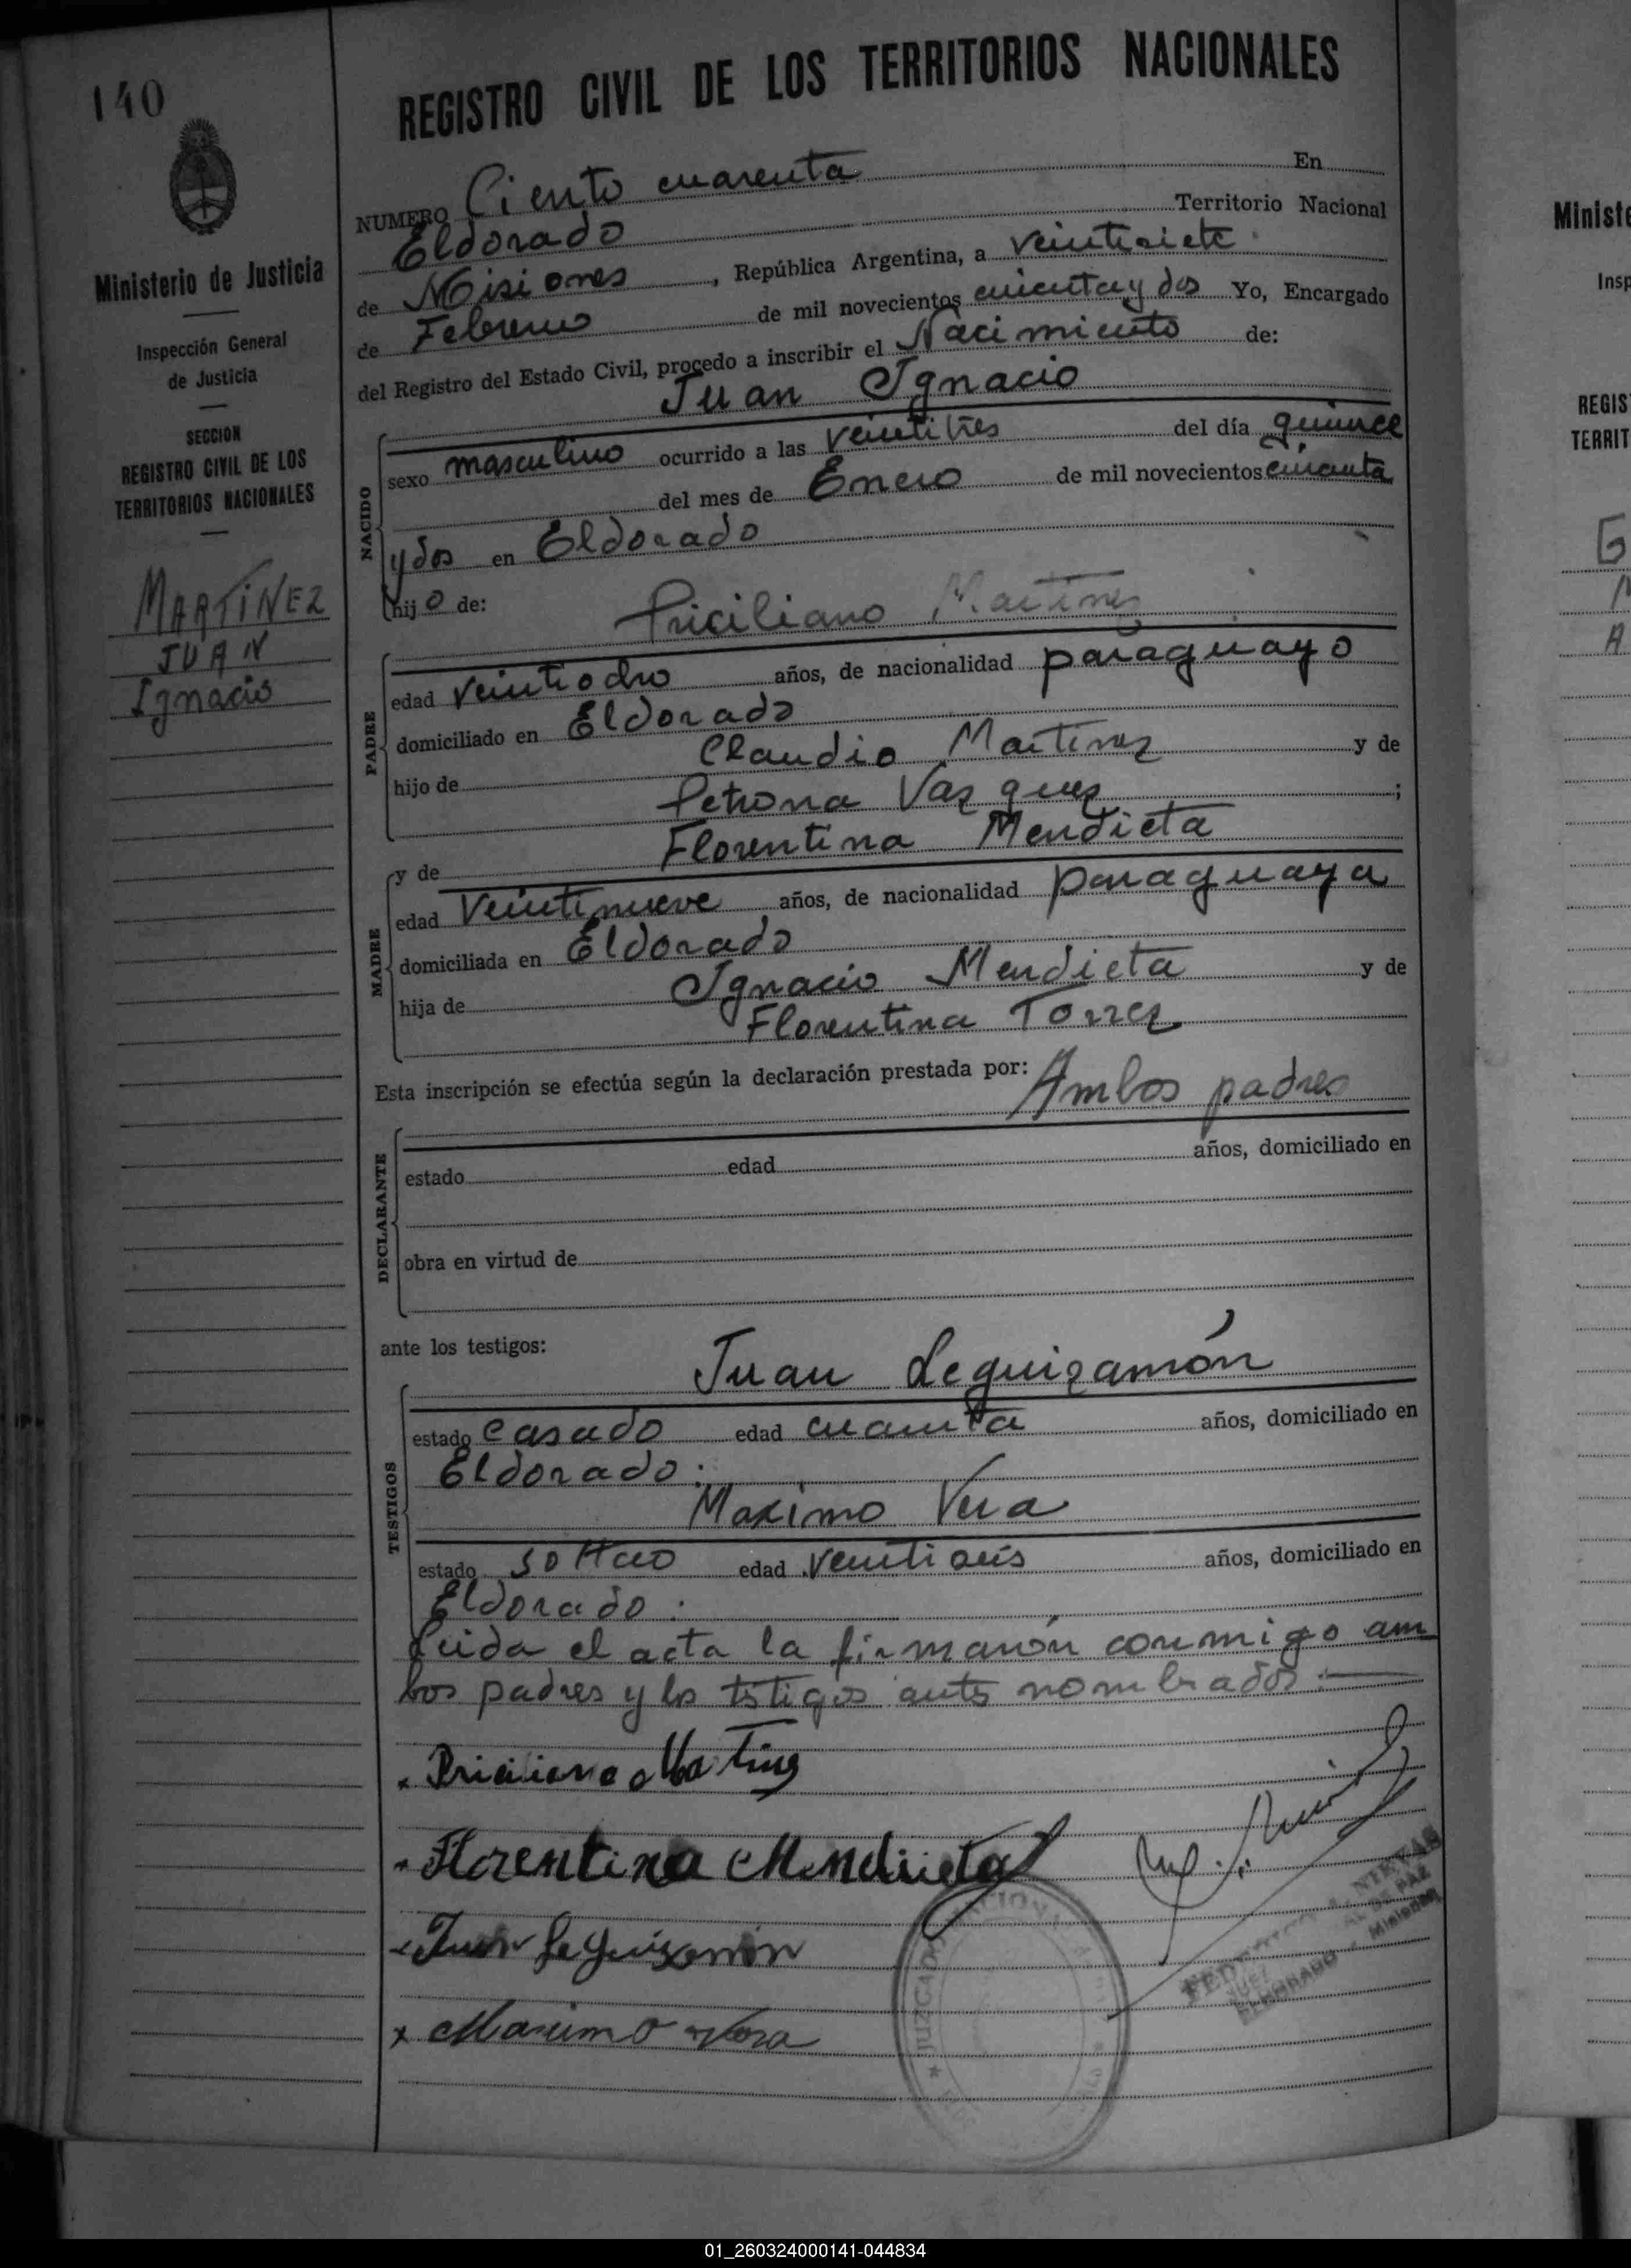 140
Ministerio de Justicia
Inspección General
de Justicia
SECCION
REGISTRO CIVIL DE LOS
TERRITORIOS NACIONALES
MARTINEZ
JUAN
Ignacio
REGISTRO CIVIL DE LOS TERRITORIOS NACIONALES
NUMERO Ciento cuarenta En
Eldorado Territorio Nacional
de Misiones, República Argentina, a veintisiete
de Febrero de mil novecientos cincuenta y dos Yo, Encargado
del Registro del Estado Civil, procedo a inscribir el Nacimiento de:
Juan Ignacio
NACIDO
sexo masculino ocurrido a las veintitres del día quince
del mes de Enero de mil novecientos cincuenta
y dos en Eldorado
hijo de:
Prisiliano Martinez
PADRE
edad veintiocho años, de nacionalidad paraguayo
domiciliado en Eldorado
hijo de Claudio Martinez y de
Petrona Vazquez;
y de Florentina Mendieta
MADRE
edad Veintinueve años, de nacionalidad paraguaya
domiciliada en Eldorado
hija de Ignacio Mendieta y de
Florentina Torrez
Esta inscripción se efectúa según la declaración prestada por: Ambos padres
DECLARANTE
estado edad años, domiciliado en
obra en virtud de
ante los testigos:
Juan Leguizamón
TESTIGOS
estado casado edad cuarenta años, domiciliado en
Eldorado.
Maximo Vera
estado soltero edad veintiseis años, domiciliado en
Eldorado.
Leida el acta la firmarón conmigo am
bos padres y los testigos antes nombrados.
x Martinez
x Florentina Mendieta
x Juan Leguizamon
x Maximo Vera
JUZGADO
NIEVAS
DE PAZ
ELDORADO - Misiones
Ministe
Insp
REGIS
TERRIT
01_260324000141-044834